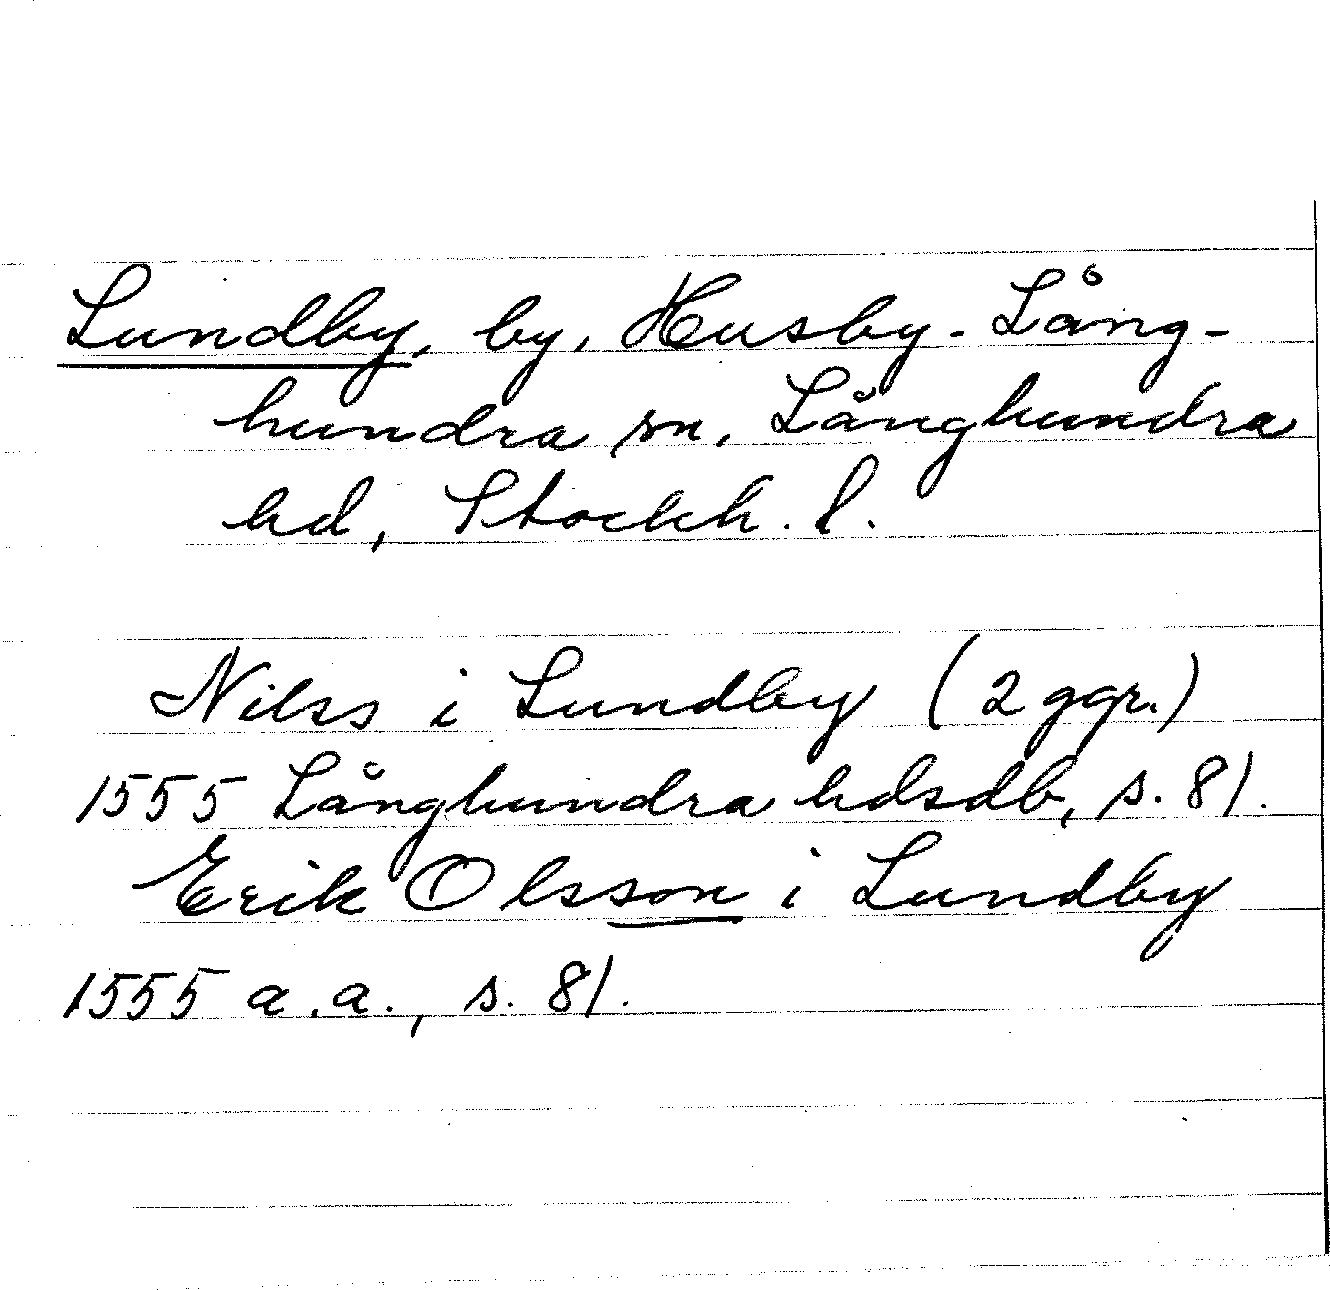 Lundby, by, Husby-Lång-
hundra sn, Långhundra
hd, Stockh. l.
Nilss i Lundby (2 ggr.)
1555 Långhundra hdsdb, s. 81.
Erik Olsson i Lundby
1555 a.a., s. 81.